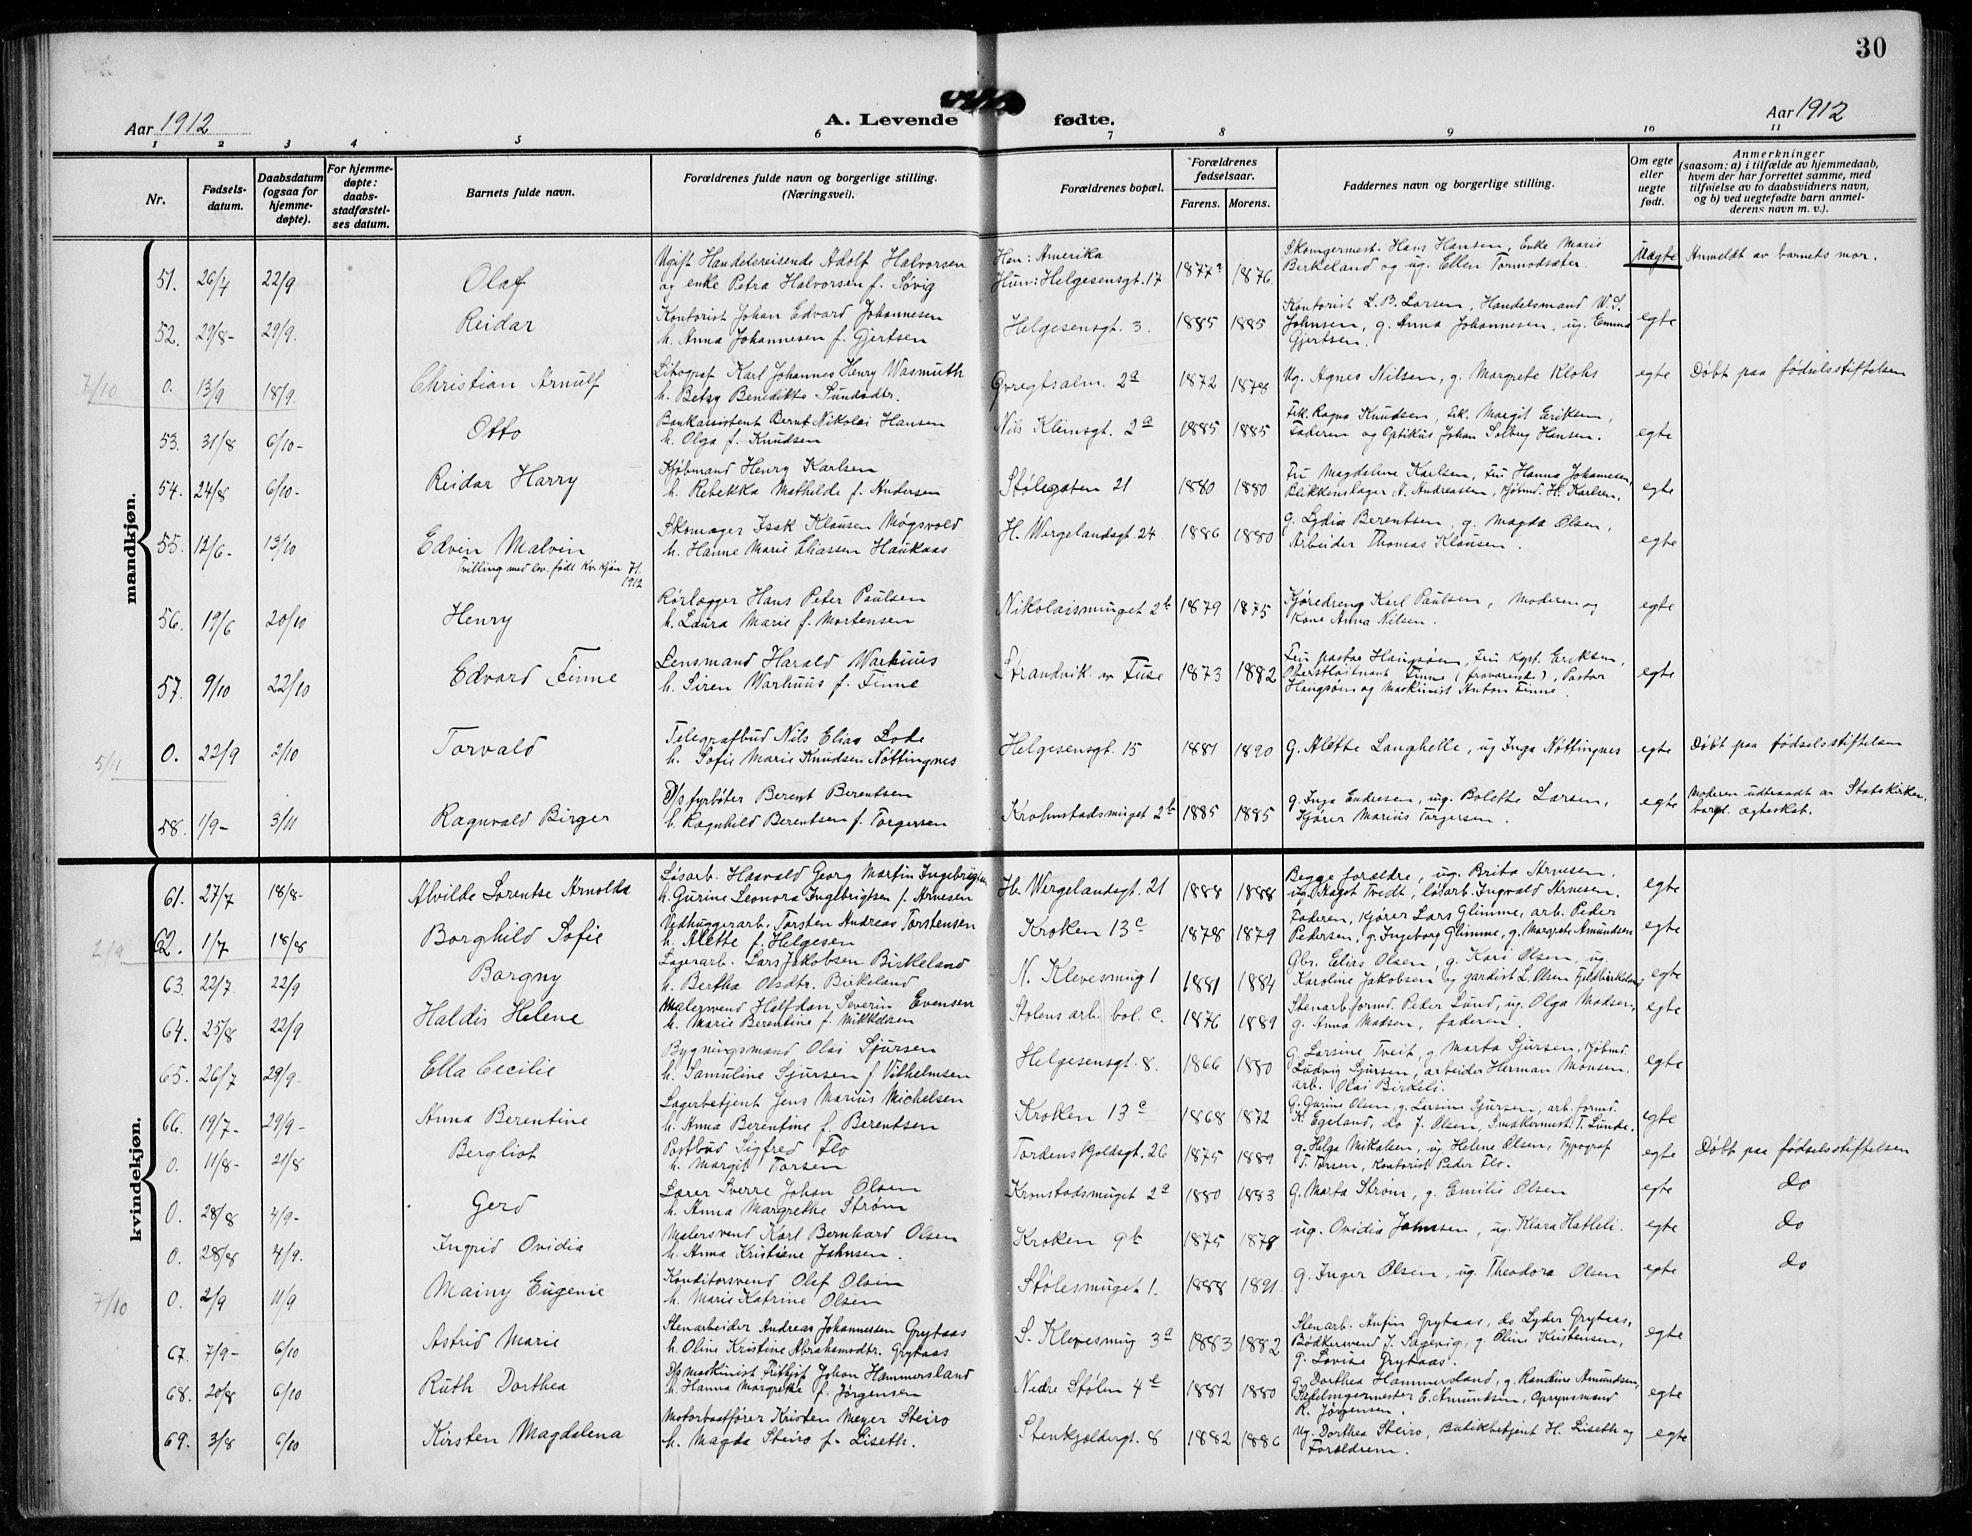 30
Aar 1912
A. Levende fødte.
Aar 1912
1 2 3 4 5 6 7 8 9 10 11
Nr.
Fødsels-
datum.
Daabsdatum
(ogsaa for
hjemme-
døpte).
For hjemme-
døpte:
daabs-
stadfæstel-
ses datum.
Barnets fulde navn.
Forældrenes fulde navn og borgerlige stilling.
(Næringsvei).
Forældrenes bopæl.
Forældrenes
fødselsaar.
Farens. Morens.
Faddernes navn og borgerlige stilling.
Om egte
eller
uegte
født.
Anmerkninger
(saasom: a) i tilfælde av hjemmedaab,
hvem der har forrettet samme, med
tilføielse av to daabsvidners navn,
og b) ved uegtefødte barn anmel-
derens navn m. v.).
mandkjøn.
51. 26/4 22/9 Olaf
Ugift Handelsreisende Adolf Halvorsen
og enke Petra Halvorsen f. Søvig
Han: Amerika
Hun: Helgesensgt. 17
1877? 1876
Hans Hansen, Enke Marie
Birkeland og ug. Ellen Tormodsæter.
Uægte
Anmeldt av barnets mor.
52. 29/8- 29/9. Reidar
Kontorist Johan Edvard Johannesen
h. Anna Johannesen f. Gjertsen
Helgesensgt. 3. 1885 1885
Kontorist L. B. Larsen, Handelsmand W. S.
Johnsen, g. Anna Johannesen, ug. Emma
Gjertsen.
egte
7/10
0. 13/9 18/9. Christian Arnulf
Litograf Karl Johannes Henry Wasmuth
h. Betzy Benedikte Sundsdtr.
2a 1872 1878
Ug. Agnes Nilsen, g. Margrete Klohs
egte
Døbt paa fødselsstiftelsen
53. 31/8 6/10- Otto
Bankassistent Bernt Nikolai Hansen
h. Olga f. Knudsen
Nils Klimsgt. 2a 1885 1885
Frk. Ragna Knudsen, frk. Margit Eriksen,
Faderen og Optikus Johan Solberg Hansen.
egte
54. 24/8 6/10- Reidar Harry
Kjøbmand Henry Karlsen
h. Rebekka Mathilde f. Andersen
Stølegaten 21 1880 1880
Fru Magdeline Karlsen, Fru Hanna Johannesen,
Blikkenslager N. Andreassen, kjøbmd. H. Karlsen,
egte
55. 12/6- 13/10 Edvin Malvin
Tvilling med lev. født kv. kjøn 71.
1912
Skomager Isak Klausen Møgsvold
h. Hanne Marie Eliassen Haukaas
H. Wergelandsgt. 24 1886 1880
g. Lydia Berentsen, g. Magda Olsen,
Arbeider Thomas Klausen.
egte
56. 19/6 20/10 Henry
Rørlægger Hans Peter Paulsen
h. Laura Marie f. Mortensen
Nikolaismuget 2b 1879 1875
Kjøredreng Karl Paulsen, Moderen og
Kone Anna Nilsen.
egte
57. 9/10 22/10 Edvard Finne
Lensmand Harald Warhuus
h. Siren Warhuus f. Finne
Strandvik av Fuse 1873 1882
Fru pastor Haugsøen, Fru Kapt. Eriksen,
Oberstløitnant Finne (fraværende), Pastor
Haugsøen og Maskinist Anton Finne.
egte
5/11
0. 22/9 2/10 Torvald
Telegrafbud Nils Elias Lode
h. Sofie Marie Knudsen Nøttingnes
Helgesensgt. 15 1881 1890
G. Alette Langhelle, ug Inga Nøttingnes
egte
Døbt paa fødselsstiftelsen
58. 1/9- 3/11 Ragnvald Birger
D/s fyrbøter Berent Berentsen
h. Ragnhild Berentsen f. Torgersen
Krohnstadsmuget 2b 1885 1885
g. Inga Endresen, ug. Bolette Larsen,
Kjører Marius Torgersen.
egte
Moderen udtraadt av Statskirken,
borgl. ægteskab.
kvindekjøn.
61. 27/7 18/8- Alvilde Lorentse Arnolda
Løsarb. Haavald Georg Martin Ingebrigtsen
h. Gurine Leonora Ingebrigtsen f. Arnesen
H. Wergelandsgt. 21 1888 1888
Begge forældre, ug. Brita Arnesen,
ug. Magot Tvedt, løsarb. Ingvald Arnesen.
egte
2/9
62. 1/7 18/8 Borghild Sofie
Vedhuggerarb. Torsten Andreas Torstensen
h. Alette f. Helgesen
Kroken 13c 1878 1879
Faderen, Kjører Lars Glimme, arb. Peder
Pedersen, g. Ingeborg Glimme, g. Margrete Amundsen
egte
63. 22/7. 22/9 Borgny
Lagerarb. Lars Jakobsen Birkeland
h. Bertha Olsdtr. Birkeland
N. Klevesmug 1 1881 1884
Gbr. Elias Olsen, g. Kari Olsen, ug.
Karoline Jakobsen og gardist L. Olsen Fjeldbirkeland
egte
64. 25/8 22/9 Haldis Helene
Malersvend Halfdan Severin Evensen
h. Marie Berentine f. Mikkelsen
Stølens arb. bol. C. 1876 1889
Stenarb.formd. Peder Lund, ug. Olga Madsen,
g. Anna Madsen, faderen.
egte
65. 26/7 29/9- Ella Cecilie
Bygningsmand Olai Sjursen
h. Samuline Sjursen f. Vilhelmsen
Helgesensgt. 8. 1866 1880
G. Larsine Tveit, g. Marta Sjursen, Kjøbmd.
Ludvig Sjursen, arbeider Herman Monsen.
arb. Olai Birkeli.
egte
66. 19/7- 29/9- Anna Berentine
Lagerbetjent Jens Marius Michelsen
h. Anna Berentine f. Berentsen
Kroken 13c 1868 1872
G. Gurine Olsen, g. Larsine Sjursen, arb. formd.
K. Egeland, do J. Olsen, Smikermest. T. Lunde.
egte
0. 11/8- 21/8 Bergliot
Postbud Sigfred Flo
h. Margit Torsen
Tordenskjoldsgt. 26 1875 1889
g. Helga Mikalsen, ug. Helene Olsen, Typograf
T. Torsen, Kontorist Peder Flo.
egte
Døbt paa fødselsstiftelsen
0. 28/8 4/9- Gerd
Lærer Sverre Johan Olsen
h. Anna Margrethe Strøm
Kronstadsmuget 2a 1880 1883
G. Marta Strøm, g. Emilie Olsen
egte
do
0. 28/8 4/9. Ingrid Ovidia
Malersvend Karl Bernhard Olsen
h. Anna Kristine Johnsen.
Kroken 9b 1875 1878
ug. Ovidia Johnsen, ug. Klara Hatleli.
egte
do
7/10
0. 2/9 11/9 Mainy Eugenie
Konditorsvend Olaf Olsen
h. Marie Katrine Olsen
Stølesmuget 1. 1888 1891
g. Inger Olsen, ug. Theodora Olsen
egte
do
67. 7/9- 6/10 Astrid Marie
Stenarbeider Andreas Johannessen Grytaas
h. Oline Kristine Abrahamsdtr. Grytaas
S. Klevesmug 3a 1883 1882
Stenarb. Anfin Grytaas, do Lyder Grytaas,
Bødkersvend J. Sagevig, g. Oline Kristensen,
G. Lovise Grytaas.
egte
68. 20/8 6/10 Ruth Dorthea
D/s Maskinist Frithjof Johan Hammersland
h. Hanna Margrete f. Jørgensen
Nedre Stølen 4e 1881 1880
G. Dorthea Hammersland, g. Randine Amundsen,
Sadelmagermester E. Amundsen, Opsynsmand
K. Jørgensen.
egte
69. 3/8 6/10 Kirsten Magdalena
Motorbaatfører Kristen Meyer Steiro
h. Magda Steiro f. Liseth.
Stenkjeldergt. 8 1882 1886
Ug. Dorthea Steiro, Butikbetjent H. Liseth og
Forældrene.
egte